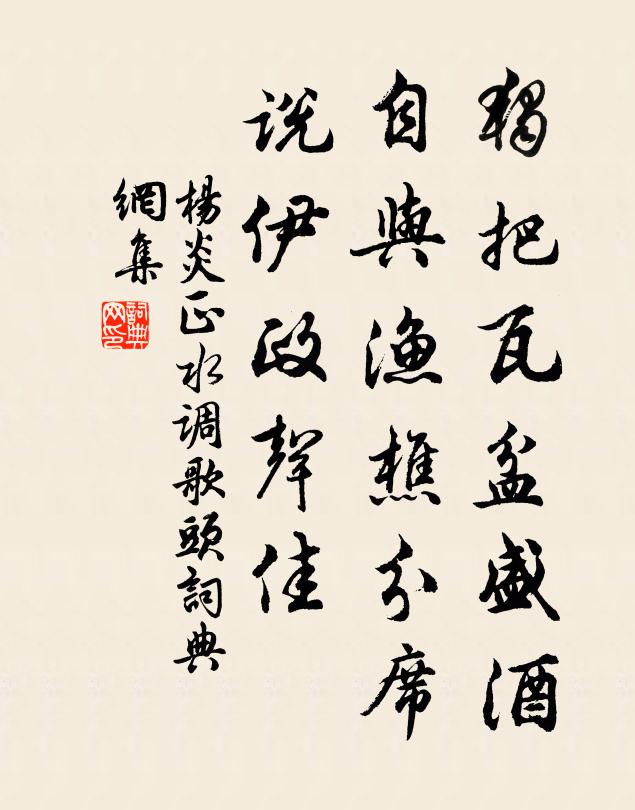 獨把瓦盆盛酒
自與漁樵分席
説伊政聲佳
楊炎正水调歌頭詞典
網集
詞典
网印